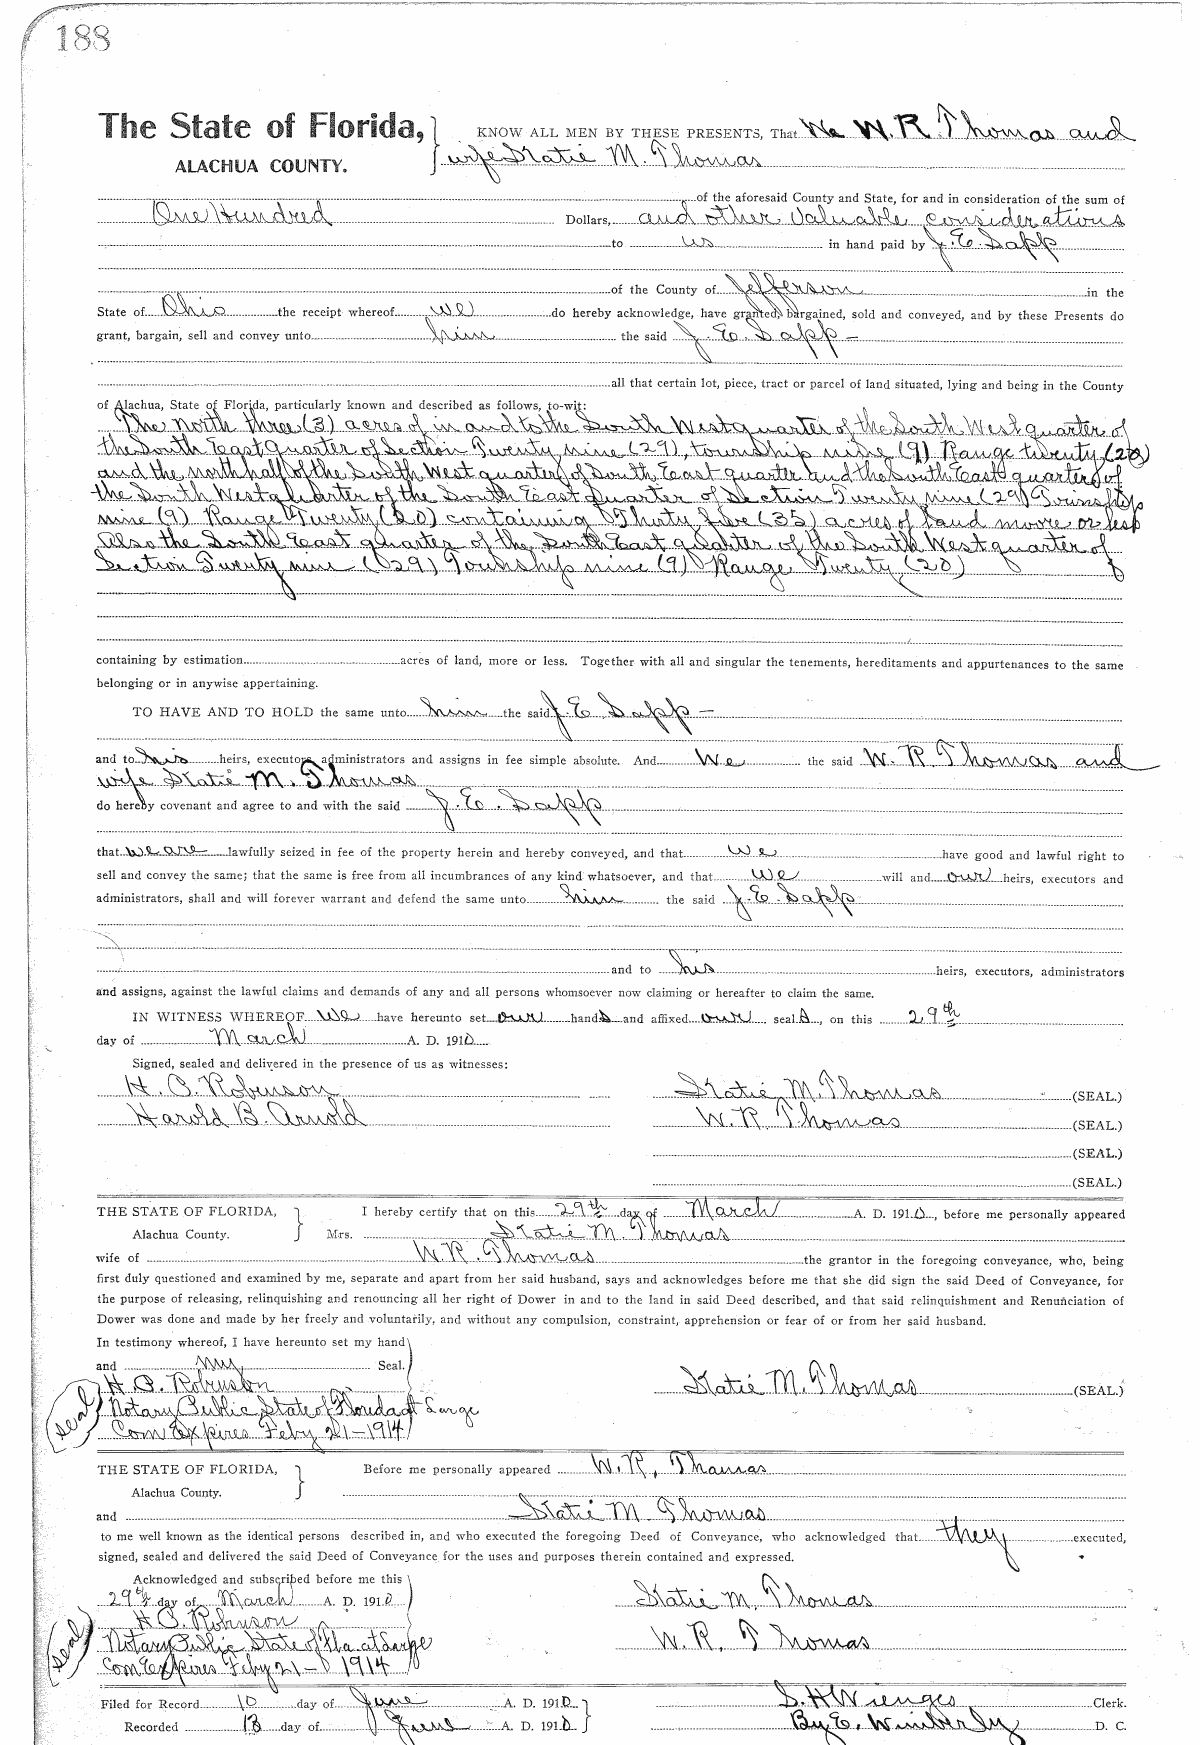 188
The State of Florida, KNOW ALL MEN BY THESE PRESENTS, That We W. R. Thomas and
ALACHUA COUNTY. wife Katie M. Thomas
of the aforesaid County and State, for and in consideration of the sum of
One Hundred Dollars, and other Valuable considerations
to us in hand paid by J. E. Sapp
of the County of Jefferson in the
State of Ohio the receipt whereof we do hereby acknowledge, have granted, bargained, sold and conveyed, and by these Presents do
grant, bargain, sell and convey unto him the said J. E. Sapp –
all that certain lot, piece, tract or parcel of land situated, lying and being in the County
of Alachua, State of Florida, particularly known and described as follows, to-wit:
The North three (3) acres of in and to the South West quarter of the South West quarter of
the South East Quarter of Section Twenty nine (29), township nine (9) Range twenty (20)
and the north half of the South West quarter of South East quarter and the South East quarter of
the South West quarter of the South East Quarter of Section Twenty nine (29) Township
nine (9) Range Twenty (20) containing Thirty five (35) acres of Land moore or less
Also the South East quarter of the South East quarter of the South West quarter of
Section Twenty nine (29) Township nine (9) Range Twenty (20)
containing by estimation acres of land, more or less. Together with all and singular the tenements, hereditaments and appurtenances to the same
belonging or in anywise appertaining.
TO HAVE AND TO HOLD the same unto him the said J. E. Sapp –
and to his heirs, executors, administrators and assigns in fee simple absolute. And We the said W. R. Thomas and
wife Katie M. Thomas
do hereby covenant and agree to and with the said J. E. Sapp
that we are lawfully seized in fee of the property herein and hereby conveyed, and that we have good and lawful right to
sell and convey the same; that the same is free from all incumbrances of any kind whatsoever, and that we will and our heirs, executors and
administrators, shall and will forever warrant and defend the same unto him the said J. E. Sapp
and to his heirs, executors, administrators
and assigns, against the lawful claims and demands of any and all persons whomsoever now claiming or hereafter to claim the same.
IN WITNESS WHEREOF We have hereunto set our hands and affixed our seals, on this 29th
day of March A. D. 1910
Signed, sealed and delivered in the presence of us as witnesses:
H. C. Robinson Katie M. Thomas (SEAL.)
Harold B. Arnold W. R. Thomas (SEAL.)
(SEAL.)
(SEAL.)
THE STATE OF FLORIDA, I hereby certify that on this 29th day of March A. D. 1910, before me personally appeared
Alachua County. Mrs. Katie M. Thomas
wife of W. R. Thomas the grantor in the foregoing conveyance, who, being
first duly questioned and examined by me, separate and apart from her said husband, says and acknowledges before me that she did sign the said Deed of Conveyance, for
the purpose of releasing, relinquishing and renouncing all her right of Dower in and to the land in said Deed described, and that said relinquishment and Renunciation of
Dower was done and made by her freely and voluntarily, and without any compulsion, constraint, apprehension or fear of or from her said husband.
In testimony whereof, I have hereunto set my hand
and my Seal.
H. C. Robinson Katie M. Thomas (SEAL.)
seal Notary Public State of Florida at Large
Com Expires Feby 21-1914
THE STATE OF FLORIDA, Before me personally appeared W. R. Thomas
Alachua County.
and Katie M. Thomas
to me well known as the identical persons described in, and who executed the foregoing Deed of Conveyance, who acknowledged that they executed,
signed, sealed and delivered the said Deed of Conveyance for the uses and purposes therein contained and expressed.
Acknowledged and subscribed before me this
29th day of March A. D. 1910 Katie M. Thomas
H. C. Robinson
seal Notary Public State of Fla. at Large W. R. Thomas
Com Expires Feby 21- 1914
Filed for Record 10 day of June A. D. 1910 S. H. Wienges Clerk.
Recorded 13 day of June A. D. 1910 By E. Wimberly D. C.